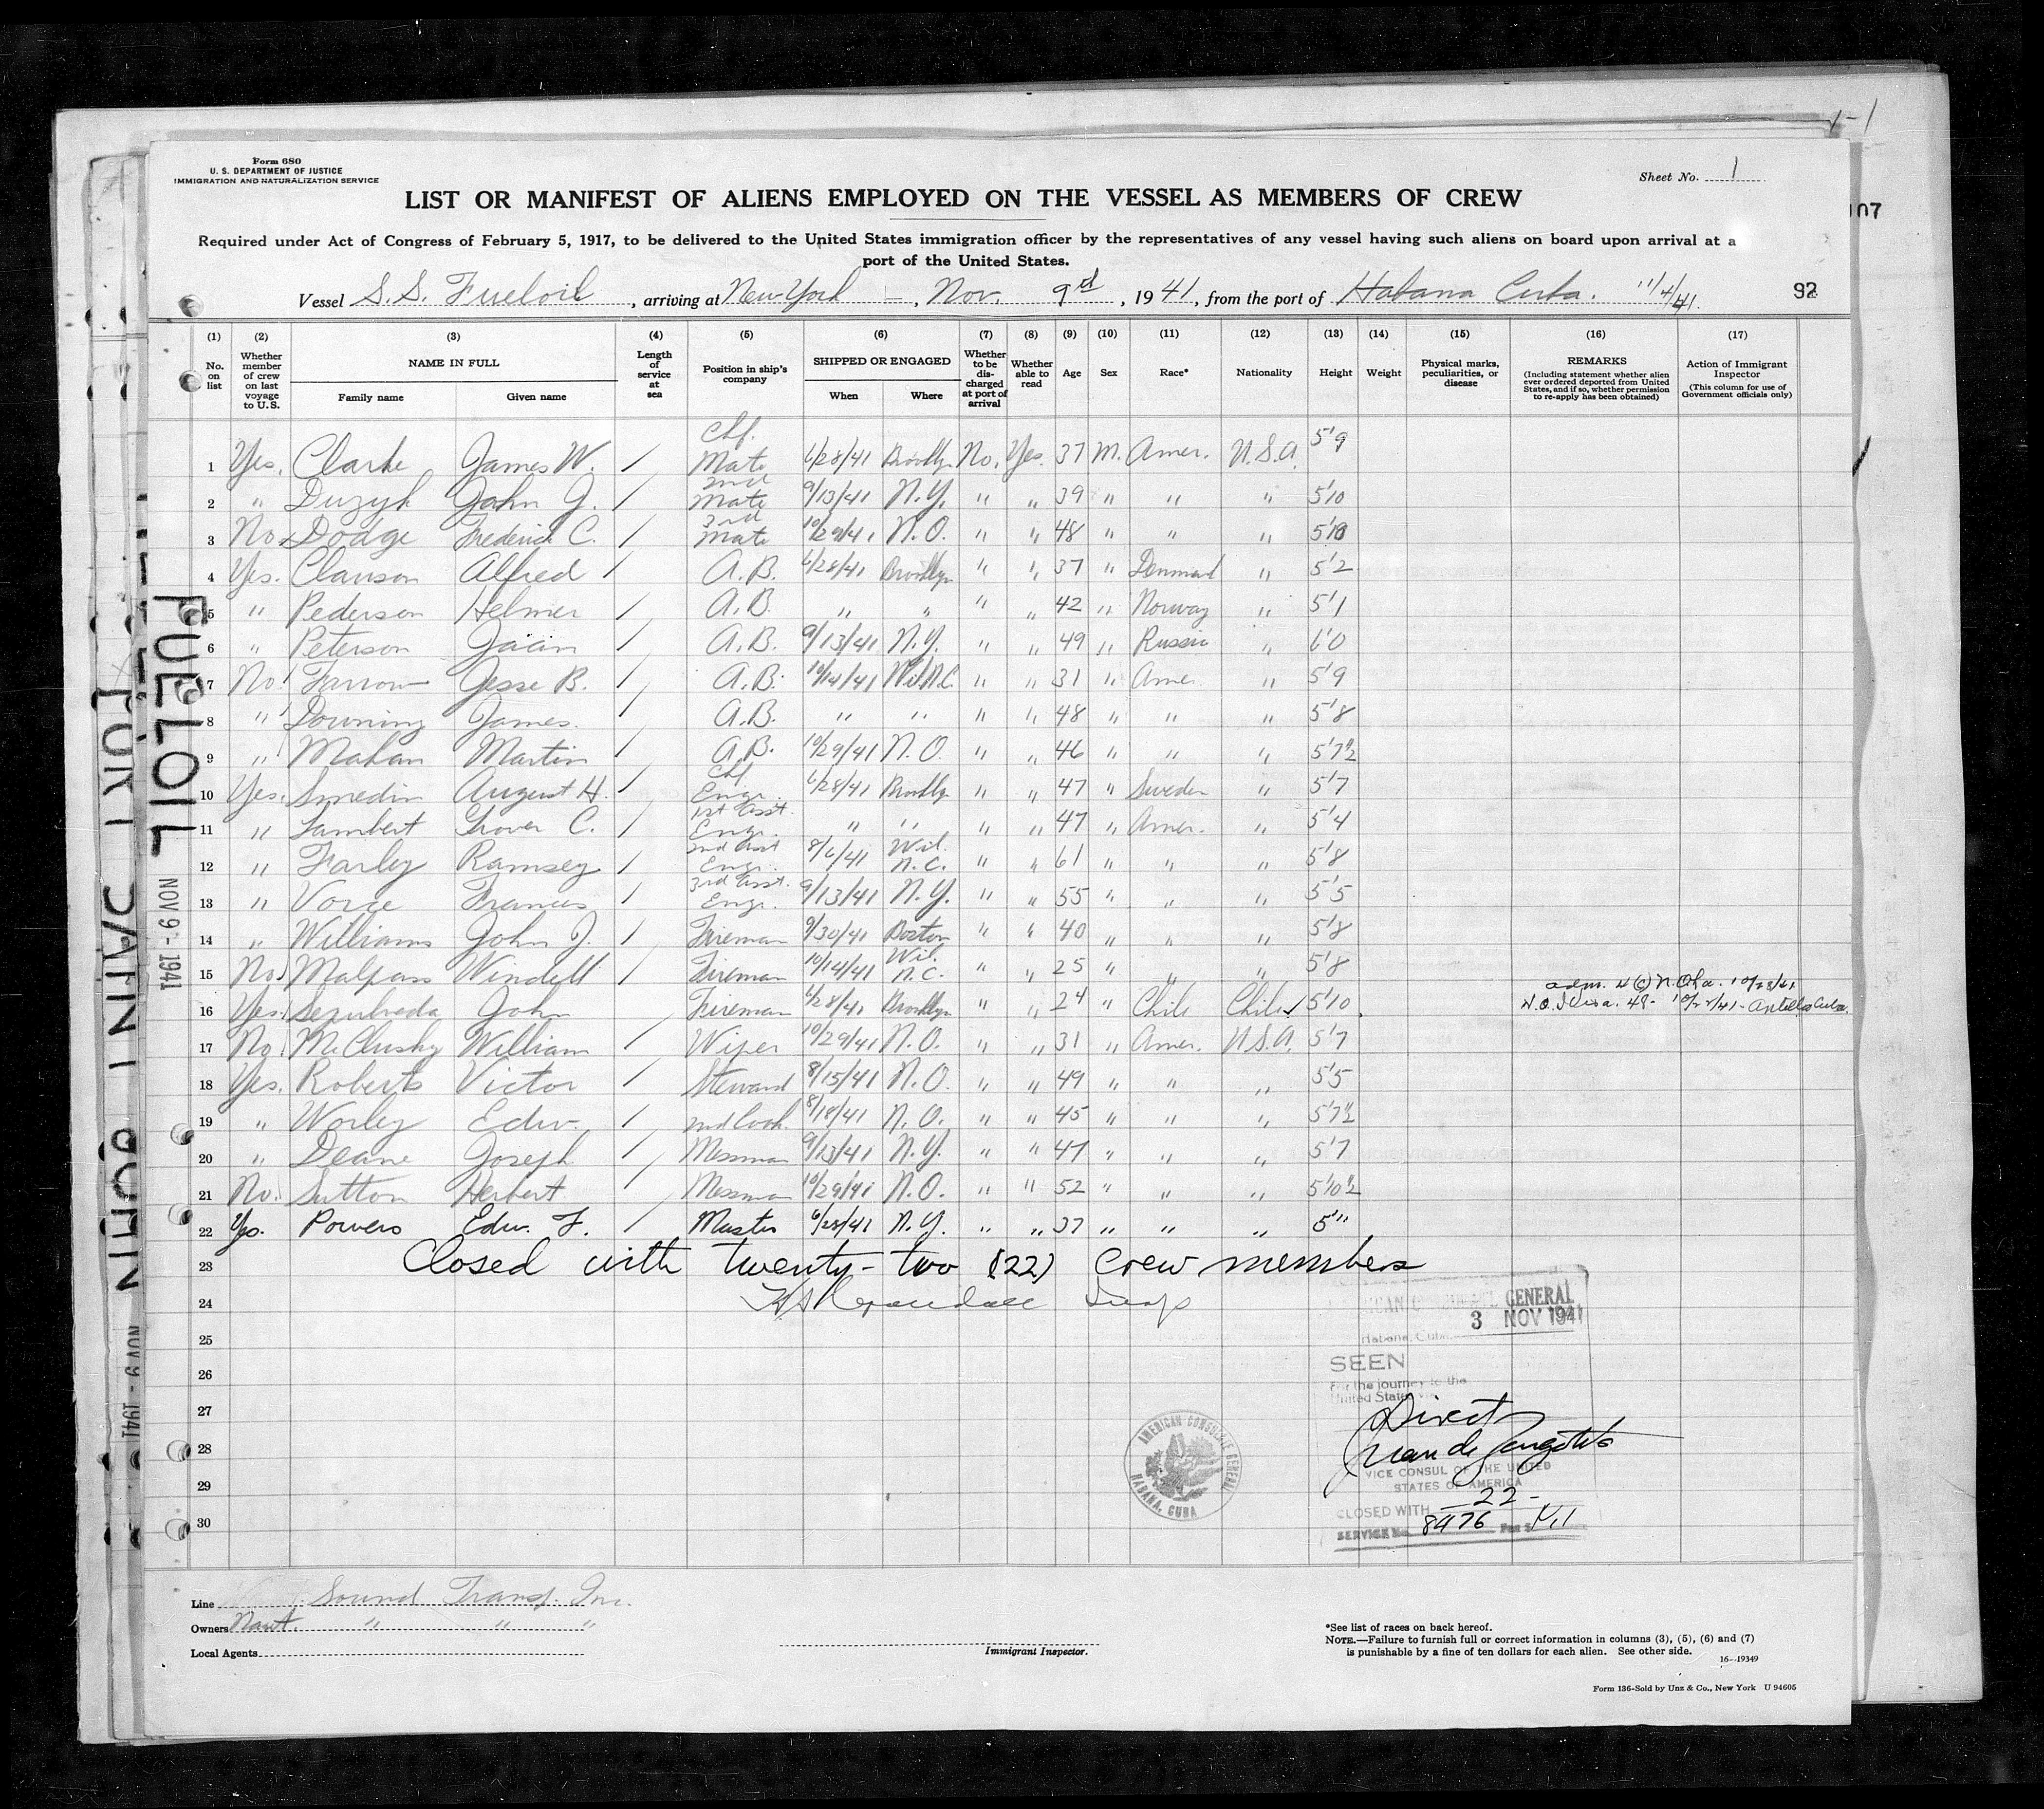 1-1
Form 680
U. S. DEPARTMENT OF JUSTICE
IMMIGRATION AND NATURALIZATION SERVICE
Sheet No. 1
LIST OR MANIFEST OF ALIENS EMPLOYED ON THE VESSEL AS MEMBERS OF CREW
107
Required under Act of Congress of February 5, 1917, to be delivered to the United States immigration officer by the representatives of any vessel having such aliens on board upon arrival at a
port of the United States.
Vessel S.S. Fueloil, arriving at New York, Nov. 9th, 1941, from the port of Habana Cuba. 11/4/41. 92
(1) (2) (3) (4) (5) (6) (7) (8) (9) (10) (11) (12) (13) (14) (15) (16) (17)
No. on list Whether member of crew on last voyage to U.S. NAME IN FULL Family name Given name Length of service at sea Position in ship's company SHIPPED OR ENGAGED When Where Whether to be discharged at port of arrival Whether able to read Age Sex Race* Nationality Height Weight Physical marks, peculiarities, or disease REMARKS (Including statement whether alien ever ordered deported from United States, and if so, whether permission to re-apply has been obtained) Action of Immigrant Inspector (This column for use of Government officials only)
1 Yes. Clarke James W. / Chf. Mate 6/28/41 Brooklyn No. Yes. 37 M. Amer. U.S.A. 5'9
2 " Duzyk John J. / 2nd Mate 9/13/41 N.Y. " " 39 " " " 5'10
3 No. Dodge Frederick C. / 3rd Mate 10/29/41 N.O. " " 48 " " " 5'10
4 Yes. Clauson Alfred / A.B. 6/28/41 Brooklyn " " 37 " Denmark " 5'2
5 " Pederson Helmer A.B. " " " " 42 " Norway " 5'1
6 " Peterson / A.B. 9/13/41 N.Y. " " 49 " Russia " 6'0
7 No. Farrow Jesse B. / A.B. 10/14/41 Wil.N.C. " " 31 " Amer. " 5'9
8 " Downing James. / A.B. " " " " 48 " " " 5'8
9 " Mahan Martin / A.B. 10/29/41 N.O. " " 46 " " " 5'7½
10 Yes. Smedin August H. / Chf. Engr. 6/28/41 Brooklyn " " 47 " Sweden " 5'7
11 " Lambert Grover C. / 1st Asst. Engr. " " " " 47 " Amer. " 5'4
12 " Farley Ramsey / 2nd Asst Engr. 8/6/41 Wil. N.C. " " 61 " " " 5'8
13 " Vorce Francis / 3rd Asst. Engr. 9/13/41 N.Y. " " 55 " " " 5'5
14 " Williams John J. / Fireman 9/30/41 Boston " " 40 " " " 5'8
15 No. Malpass Windell / Fireman 10/14/41 Wil. N.C. " " 25 " " " 5'8
16 Yes. Sepulveda John / Fireman 6/28/41 Brooklyn " " 24 " Chile Chile 5'10
17 No. McClusky William / Wiper 10/29/41 N.O. " " 31 " Amer. U.S.A. 5'7
18 Yes. Roberts Victor / Steward 8/15/41 N.O. " " 49 " " " 5'5
19 " Worley Edw. / 2nd Cook. 8/18/41 N.O. " " 45 " " " 5'7½
20 " Deane Joseph / Messman 9/13/41 N.Y. " " 47 " " " 5'7
21 No. Sutton Herbert / Messman 10/29/41 N.O. " " 52 " " " 5'10½
22 Yes. Powers Edw. F. / Master 6/28/41 N.Y. " " 37 " " " 5'11
23 Closed with twenty-two (22) crew members
24
25
26
27
28
29
30
GENERAL
3 NOV 1941
Habana, Cuba
SEEN
For the journey to the
United States
Direct
VICE CONSUL OF THE UNITED
STATES OF AMERICA
CLOSED WITH -22-
SERVICE No. 8976
AMERICAN CONSULATE GENERAL
HABANA, CUBA
FUELOIL
NOV 9 - 1941
NOV 9 - 1941
Line Sound Transp. Inc.
Owners Nawt. " " "
Local Agents
Immigrant Inspector.
*See list of races on back hereof.
NOTE.—Failure to furnish full or correct information in columns (3), (5), (6) and (7)
is punishable by a fine of ten dollars for each alien. See other side.
16—19349
Form 136-Sold by Unz & Co., New York U 94605